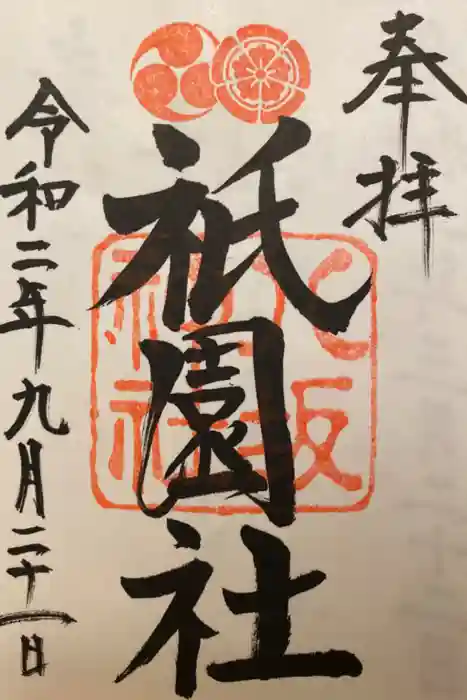 奉拝
祇園社
八坂神社
令和二年九月二十一日